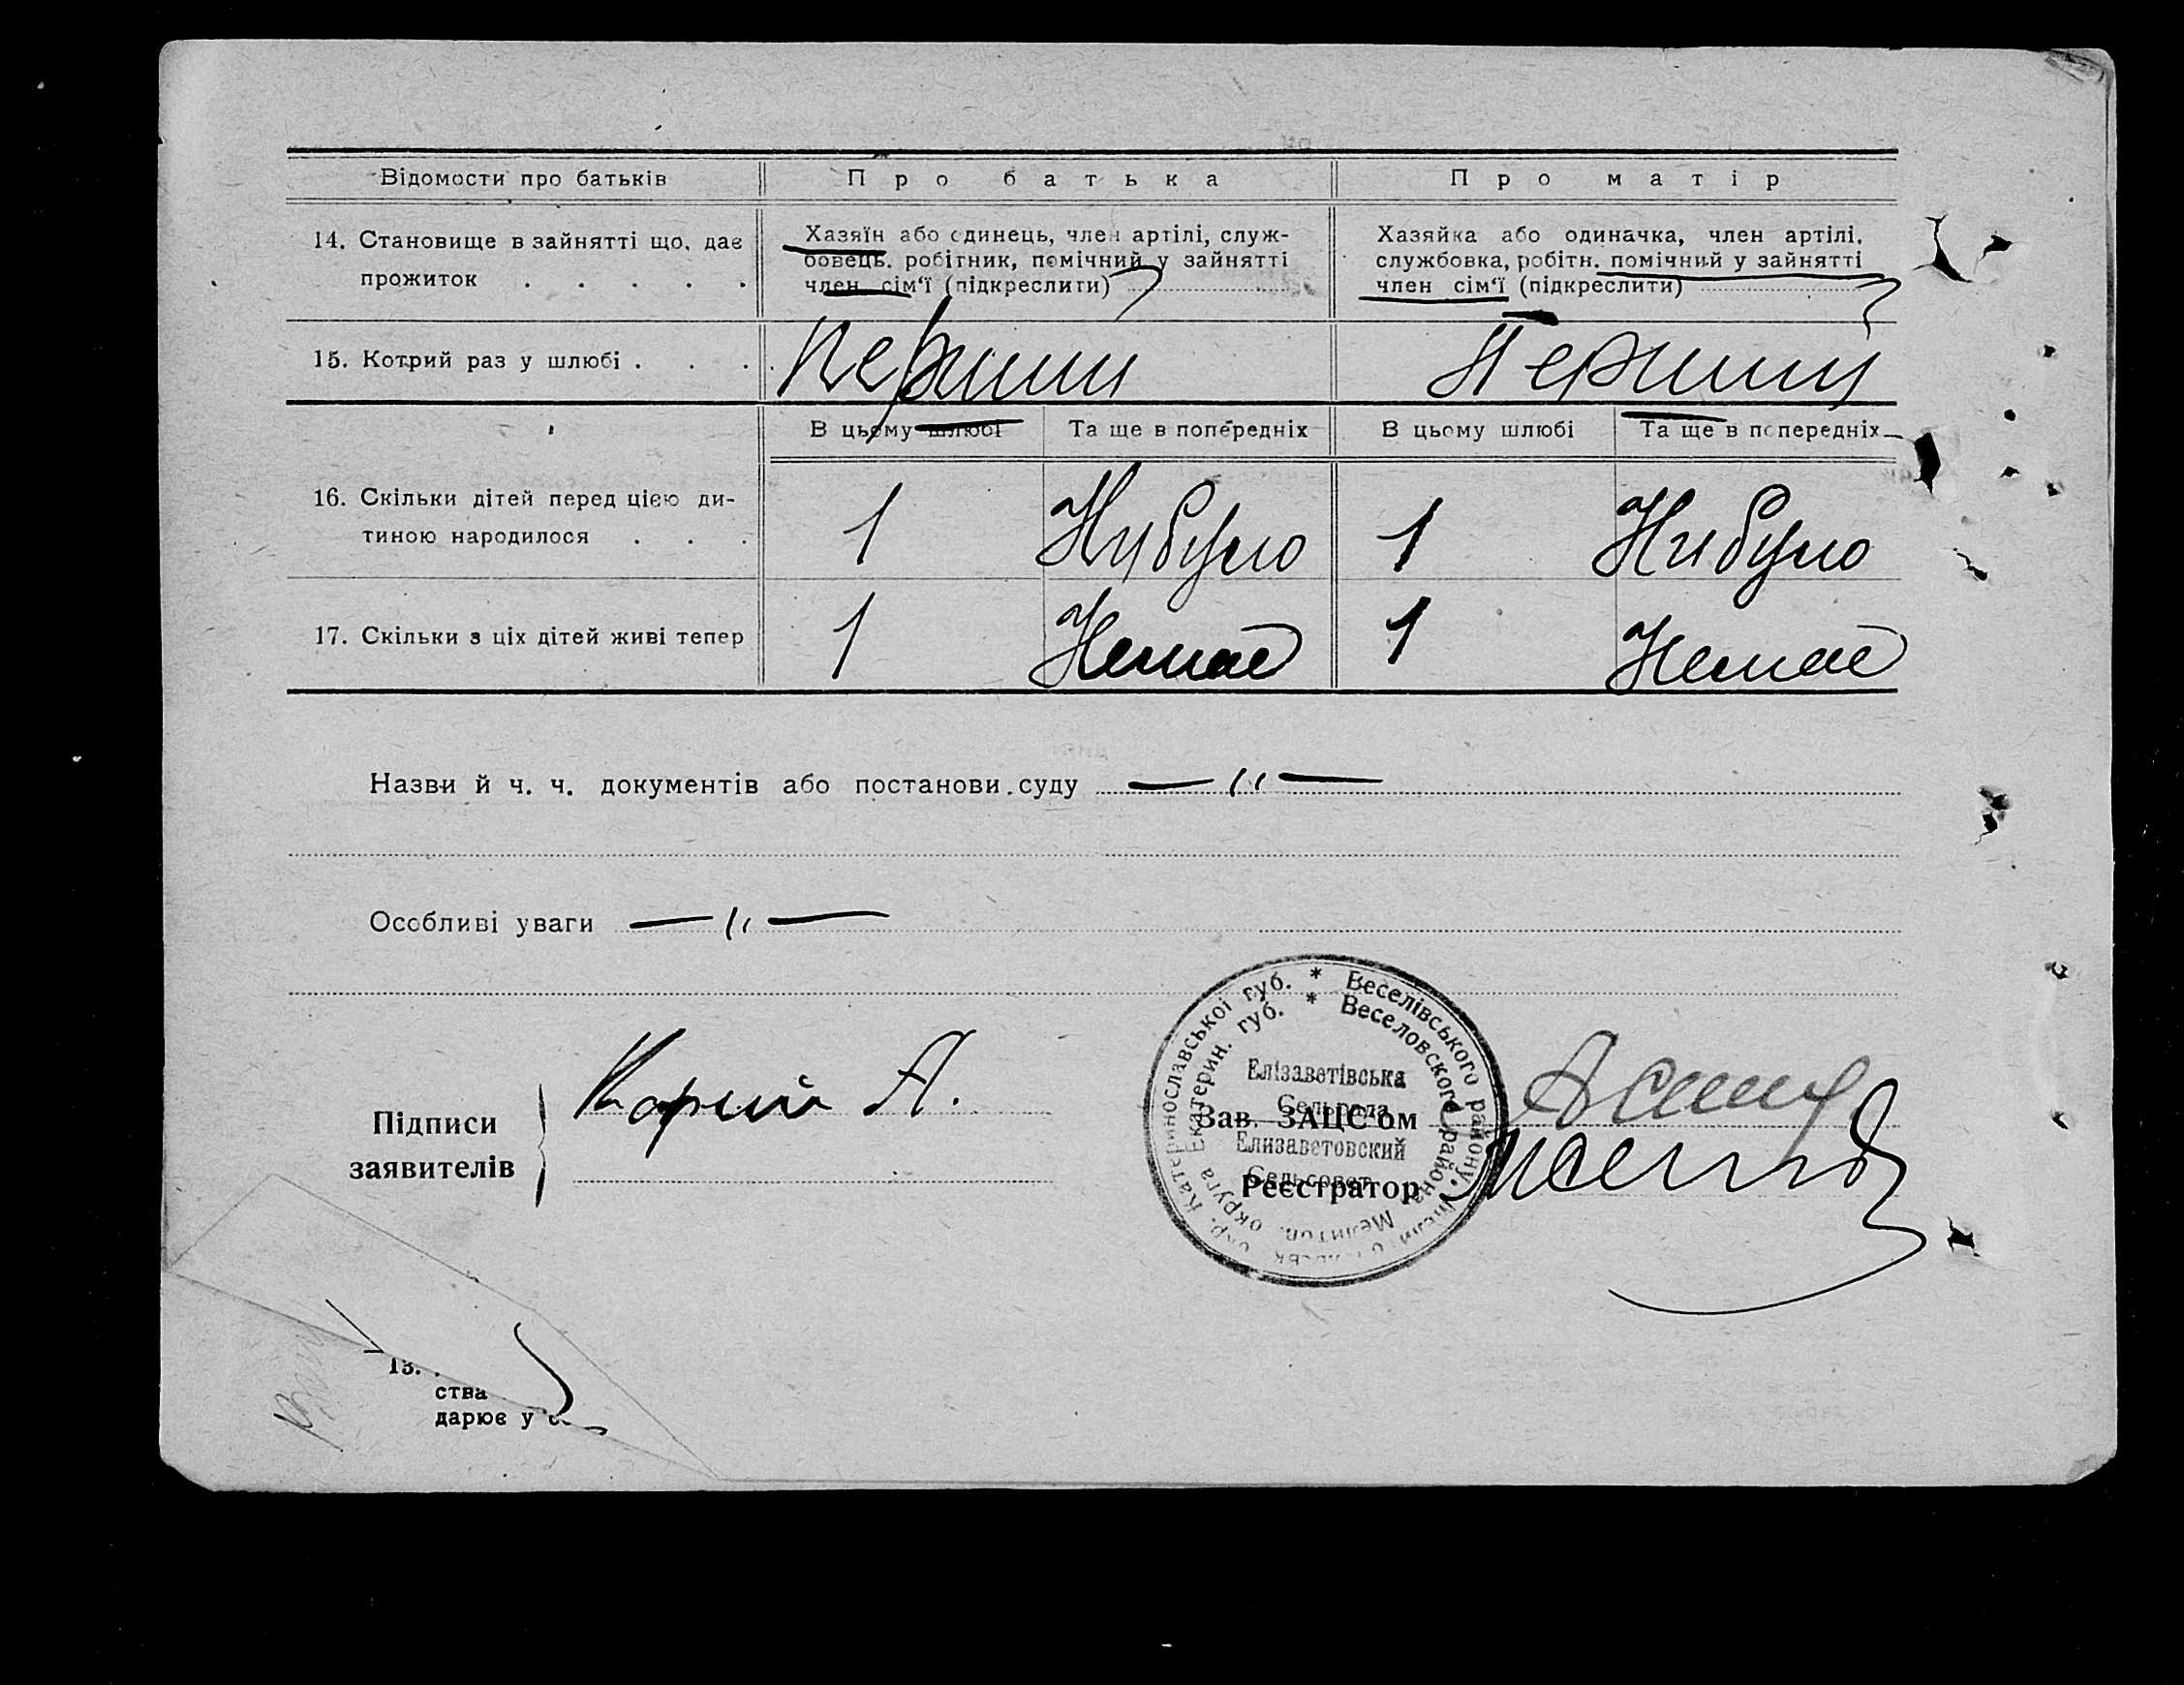 Відомости про батьків Про батька Про матір
14. Становище в зайнятті що, дає прожиток . . . . .
Хазяїн або єдинець, член артілі, служ-
бовець, робітник, помічний у зайнятті
член сім'ї (підкреслити)
Хазяйка або одиначка, член артілі,
службовка, робітн. помічний у зайнятті
член сім'ї (підкреслити)
15. Котрий раз у шлюбі . . . Перший Перший
В цьому шлюбі Та ще в попередніх В цьому шлюбі Та ще в попередніх
16. Скільки дітей перед цією ди-
тиною народилося . . . 1 Нибуло 1 Нибуло
17. Скільки з ціх дітей живі тепер 1 Немає 1 Немає
Назви й ч. ч. документів або постанови суду — " —
Особливі уваги — " —
Підписи
заявителів
А.
Зав. ЗАЦС'ом
Реєстратор
* Веселівського району, окр. Катеринославської губ.
* Веселовского района Мелитоп. округа Екатерин. губ.
Елізаветівська
Сельрада
Елизаветовский
Сельсовет
13.
ства
дарює у